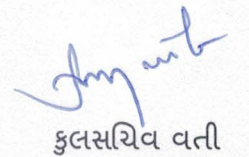 કુલસચિવ વતી